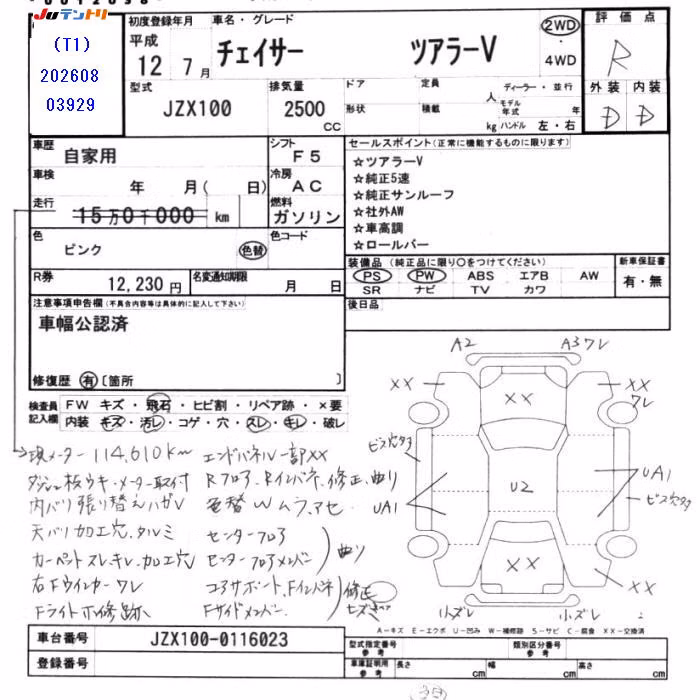 JUテントリ
(T1)
202608
03929
初度登録年月
平成
12 7月
車名・グレード
チェイサー ツアラーV
2WD
・
4WD
評価点
R
外装 内装
D D
型式
JZX100
排気量
2500
CC
ドア 定員 人 ディーラー・並行
形状 積載 kg モデル年式 年
ハンドル 左・右
車歴
自家用
シフト
F5
車検
年 月( 日)
冷房
AC
走行
15万0千000 km
燃料
ガソリン
色
ピンク 色替
色コード
R券
12,230 円
名変通知期限
月 日
セールスポイント(正常に機能するものに限ります)
☆ツアラーV
☆純正5速
☆純正サンルーフ
☆社外AW
☆車高調
☆ロールバー
装備品(純正品に限り○をつけてください)
PS PW ABS エアB AW
SR ナビ TV カワ
新車保証書
有・無
後日品
注意事項申告欄(不具合内容等は具体的に記入して下さい)
車幅公認済
修復歴 有〔箇所 〕
検査員記入欄
FW キズ・飛石・ヒビ割・リペア跡・×要
内装 キズ・汚レ・コゲ・穴・スレ・キレ・破レ
現メーター 114,610km エンドパネル一部XX
ダッシュ板ウキ・メーター取付 Rフロア、Rインパネ、修正、曲り
内バリ張り替えハガレ 色替Wムラ、アセ
天バリ加工穴、タルミ センターフロア
カーペットスレ、キレ、加工穴 センターフロアメンバー 曲り
右Fウインカーワレ コアサポート、Fインパネ 修正
Fライトホ修跡 Fサイドメンバー
A2 A3ワレ
XX XX XX
ワレ
ビス穴タ3
UA1 U2 UA1
ビス穴タ3
XX XX
小ズレ 小ズレ
A―キズ E―エクボ U―凹み W―補修跡 S―サビ C―腐食 XX―交換済
車台番号 JZX100-0116023
登録番号
型式指定番号 参考 類別区分番号 参考
車庫証明用 参考 長さ cm 幅 cm 高さ cm